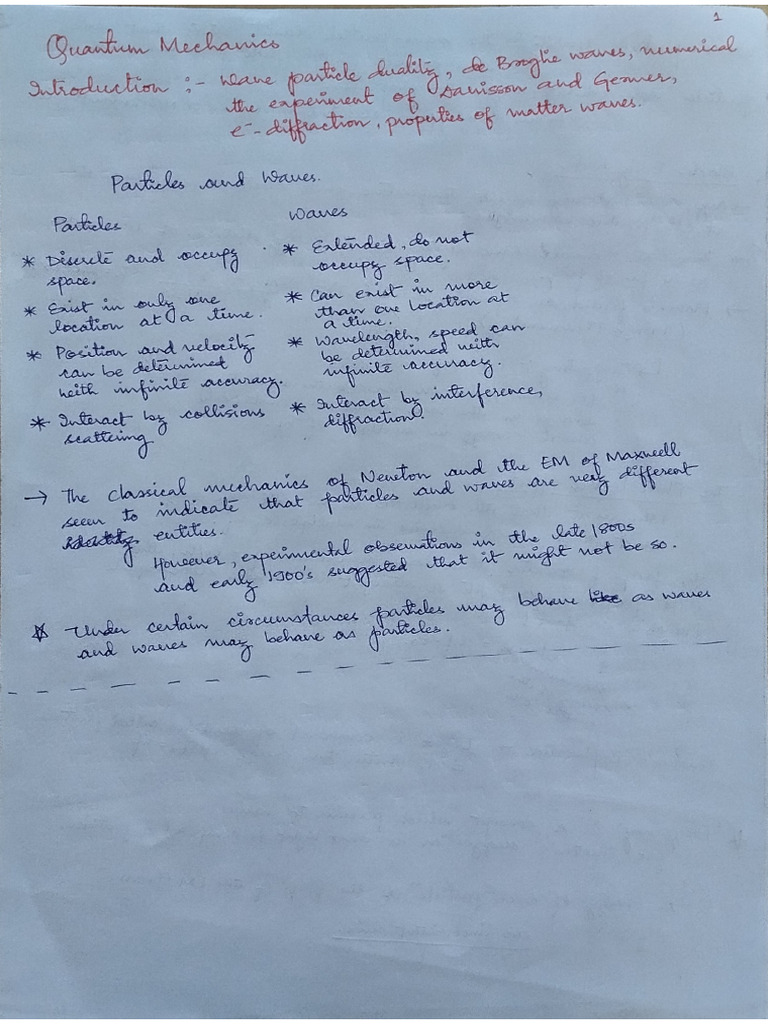 1
Quantum Mechanics
Introduction :- Wave particle duality, de Broglie waves, numerical
the experiment of Davisson and Germer,
e- diffraction, properties of matter waves.
Particles and Waves.
Particles
* Discrete and occupy
space.
* Exist in only one
location at a time.
* Position and velocity
can be determined
with infinite accuracy.
* Interact by collisions
scattering
Waves
* Extended, do not
occupy space.
* Can exist in more
than one location at
a time.
* Wavelength, speed can
be determined with
infinite accuracy.
* Interact by interference,
diffraction.
→ The classical mechanics of Newton and the EM of Maxwell
seem to indicate that particles and waves are very different
entities.
However, experimental observations in the late 1800s
and early 1900's suggested that it might not be so.
☆ Under certain circumstances particles may behave like as waves
and waves may behave as particles.